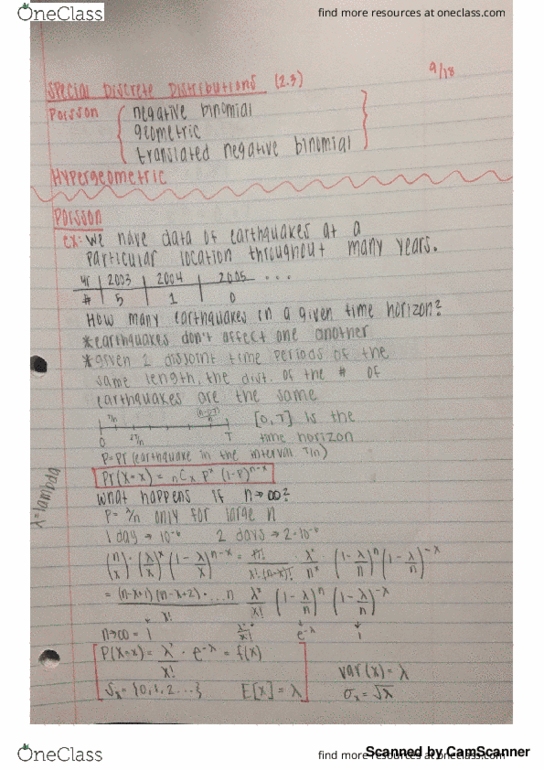 OneClass
find more resources at oneclass.com
9/18
SPECIAL DISCRETE DISTRIBUTIONS (2.3)
POISSON
negative binomial
geometric
translated negative binomial
HYPERGEOMETRIC
POISSON
ex: We have data of earthquakes at a
particular location throughout many years.
yr | 2003 | 2004 | 2005 ...
# | 5 | 1 | 0
How many earthquakes in a given time horizon?
*earthquakes don't affect one another
*given 2 disjoint time periods of the
same length, the dist. of the # of
earthquakes are the same
T/n
0 2T/n T
[0,T] is the
time horizon
P=Pr(earthquake in the interval T/n)
Pr(X=x) = nCx P^x (1-P)^n-x
λ=lambda
What happens if n→∞?
P= λ/n only for large n
1 day → 10^-6 2 days → 2·10^-6
(n x)·(λ/x)^x (1-λ/x)^n-x = n!/x!(n-x)! λ^x/n^x (1-λ/n)^n (1-λ/n)^-x
= (n-x+1)(n-x+2)·...n/x! λ^x/x! (1-λ/n)^n (1-λ/n)^-x
n→∞ = 1 λ^x/x! e^-λ 1
P(X=x) = λ^x/x! · e^-λ = f(x)
Sx = {0,1,2...} E[X] = λ
Var(x) = λ
σx = √λ
Scanned by CamScanner
OneClass
find more resources at oneclass.com